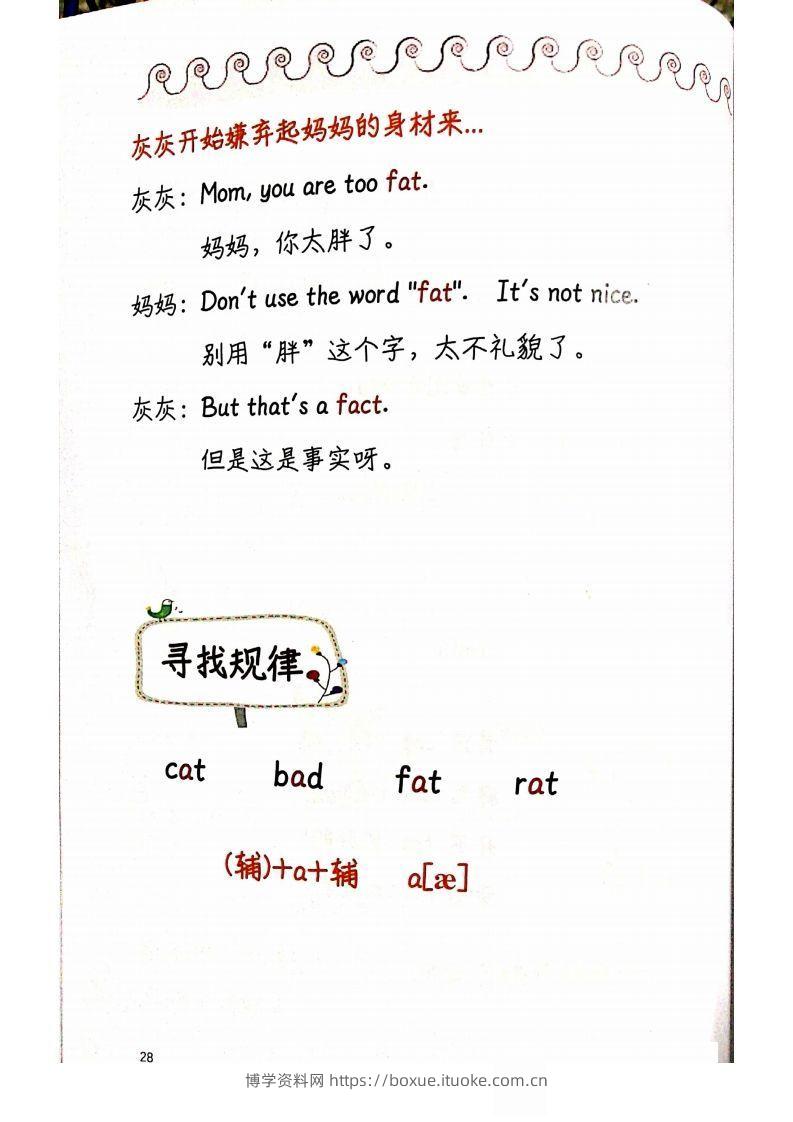 灰灰开始嫌弃起妈妈的身材来...
灰灰：Mom, you are too fat.
妈妈，你太胖了。
妈妈：Don't use the word "fat". It's not nice.
别用“胖”这个字，太不礼貌了。
灰灰：But that's a fact.
但是这是事实呀。
寻找规律
cat bad fat rat
(辅)+a+辅 a[æ]
28
博学资料网 https://boxue.ituoke.com.cn